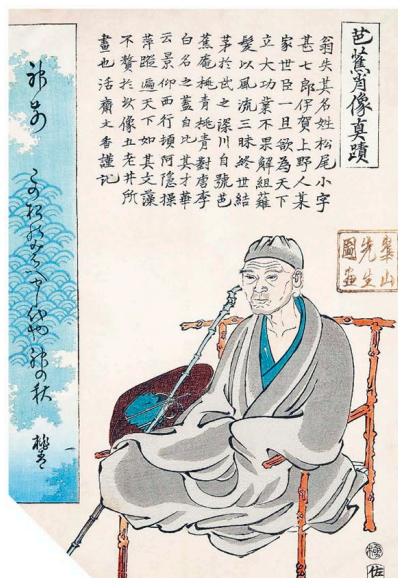 芭蕉肖像真蹟
翁失其名姓松尾小字
甚七郎伊賀上野人某
家世臣一旦欲為天下
立大功業不果解組薙
髪以風流三昧終世結
茅於武之深川自號芭
蕉庵桃青桃青對唐李
白名之蓋自比其才華
云景仰西行頓阿隠操
萍蹤遍天下如其文藻
不贅於玆像五老井所
畫也活齋文香謹記
崋山
先生
圖画
桃青
極
佐